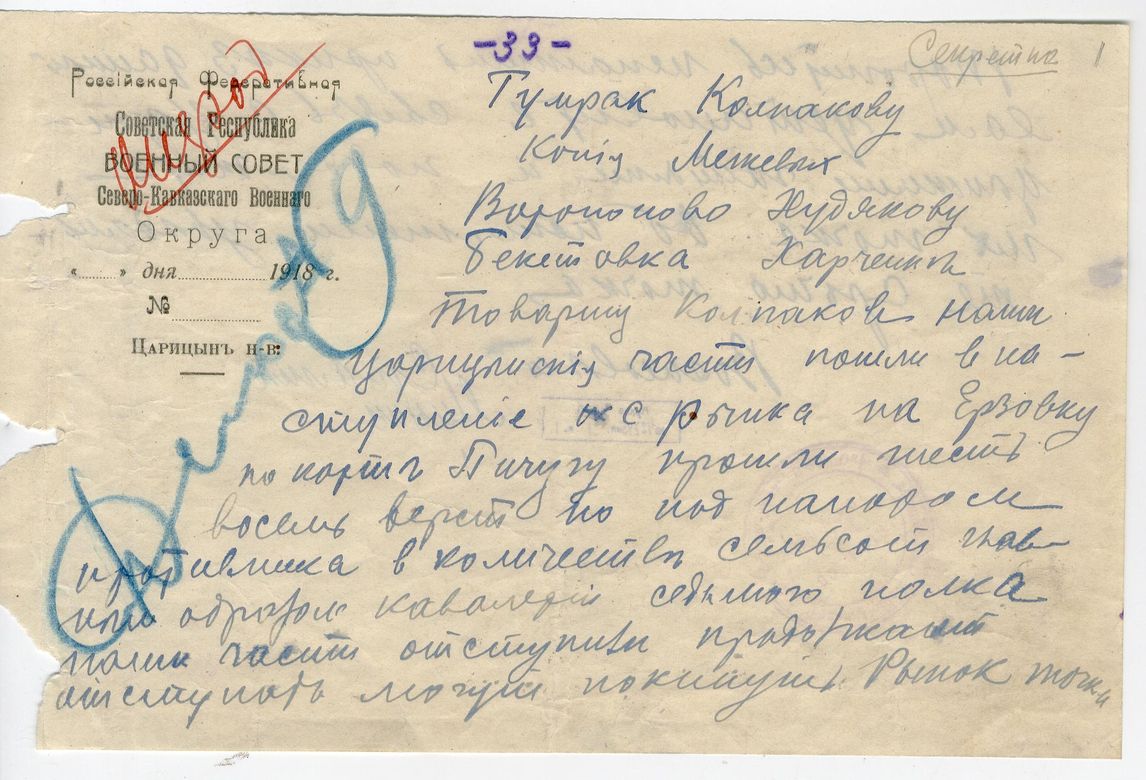 -33-
Секретно 1
Россійская Федеративная
Советская Республика
ВОЕННЫЙ СОВЕТ
Северо-Кавказскаго Военнаго
Округа
«......» дня 1918 г.
№
Царицынъ н-в:
Гумрак Колпакову
Копія Межевых
Воропоново Худякову
Бекетовка Харченко
Товарищ Колпаков наши
царицынскія части пошли в на-
ступленіе с Рынка на Ерзовку
по картъ Пичугу прошли шесть
восемь верст но под напором
противника в количествъ семьсот глав-
ным образом кавалеріи седьмого полка
наши части отступили продолжают
отступать могут покинуть Рынок точка